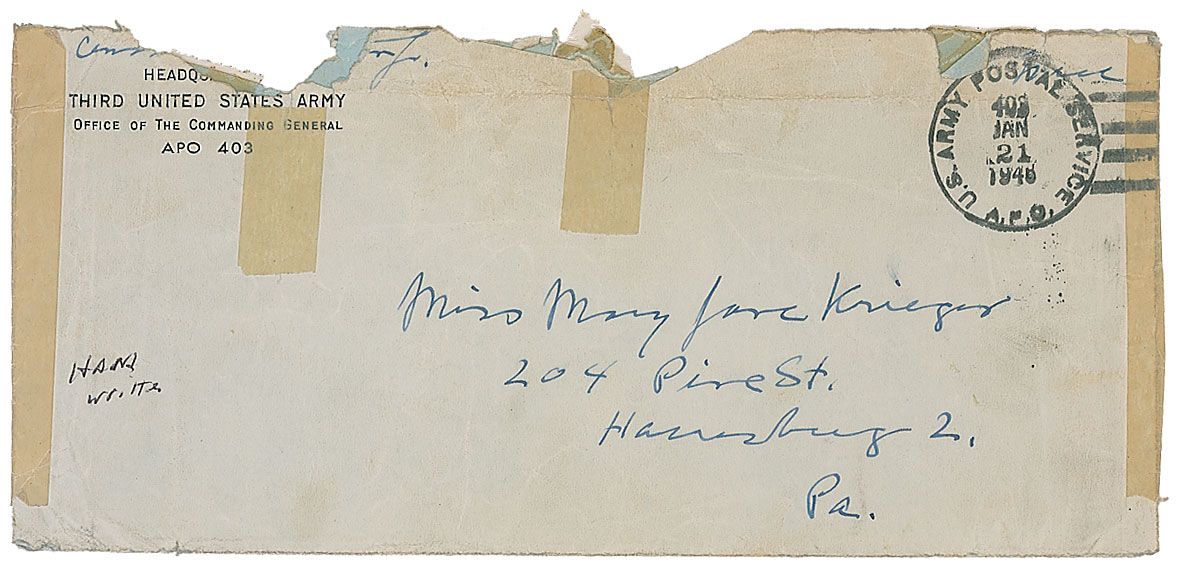 HEADQU
THIRD UNITED STATES ARMY
OFFICE OF THE COMMANDING GENERAL
APO 403
U.S. ARMY POSTAL SERVICE A.P.O.
403
JAN
21
1946
Miss Mary Jane Krieger
204 Pine St.
Harrisburg 2,
Pa.
HAND
write